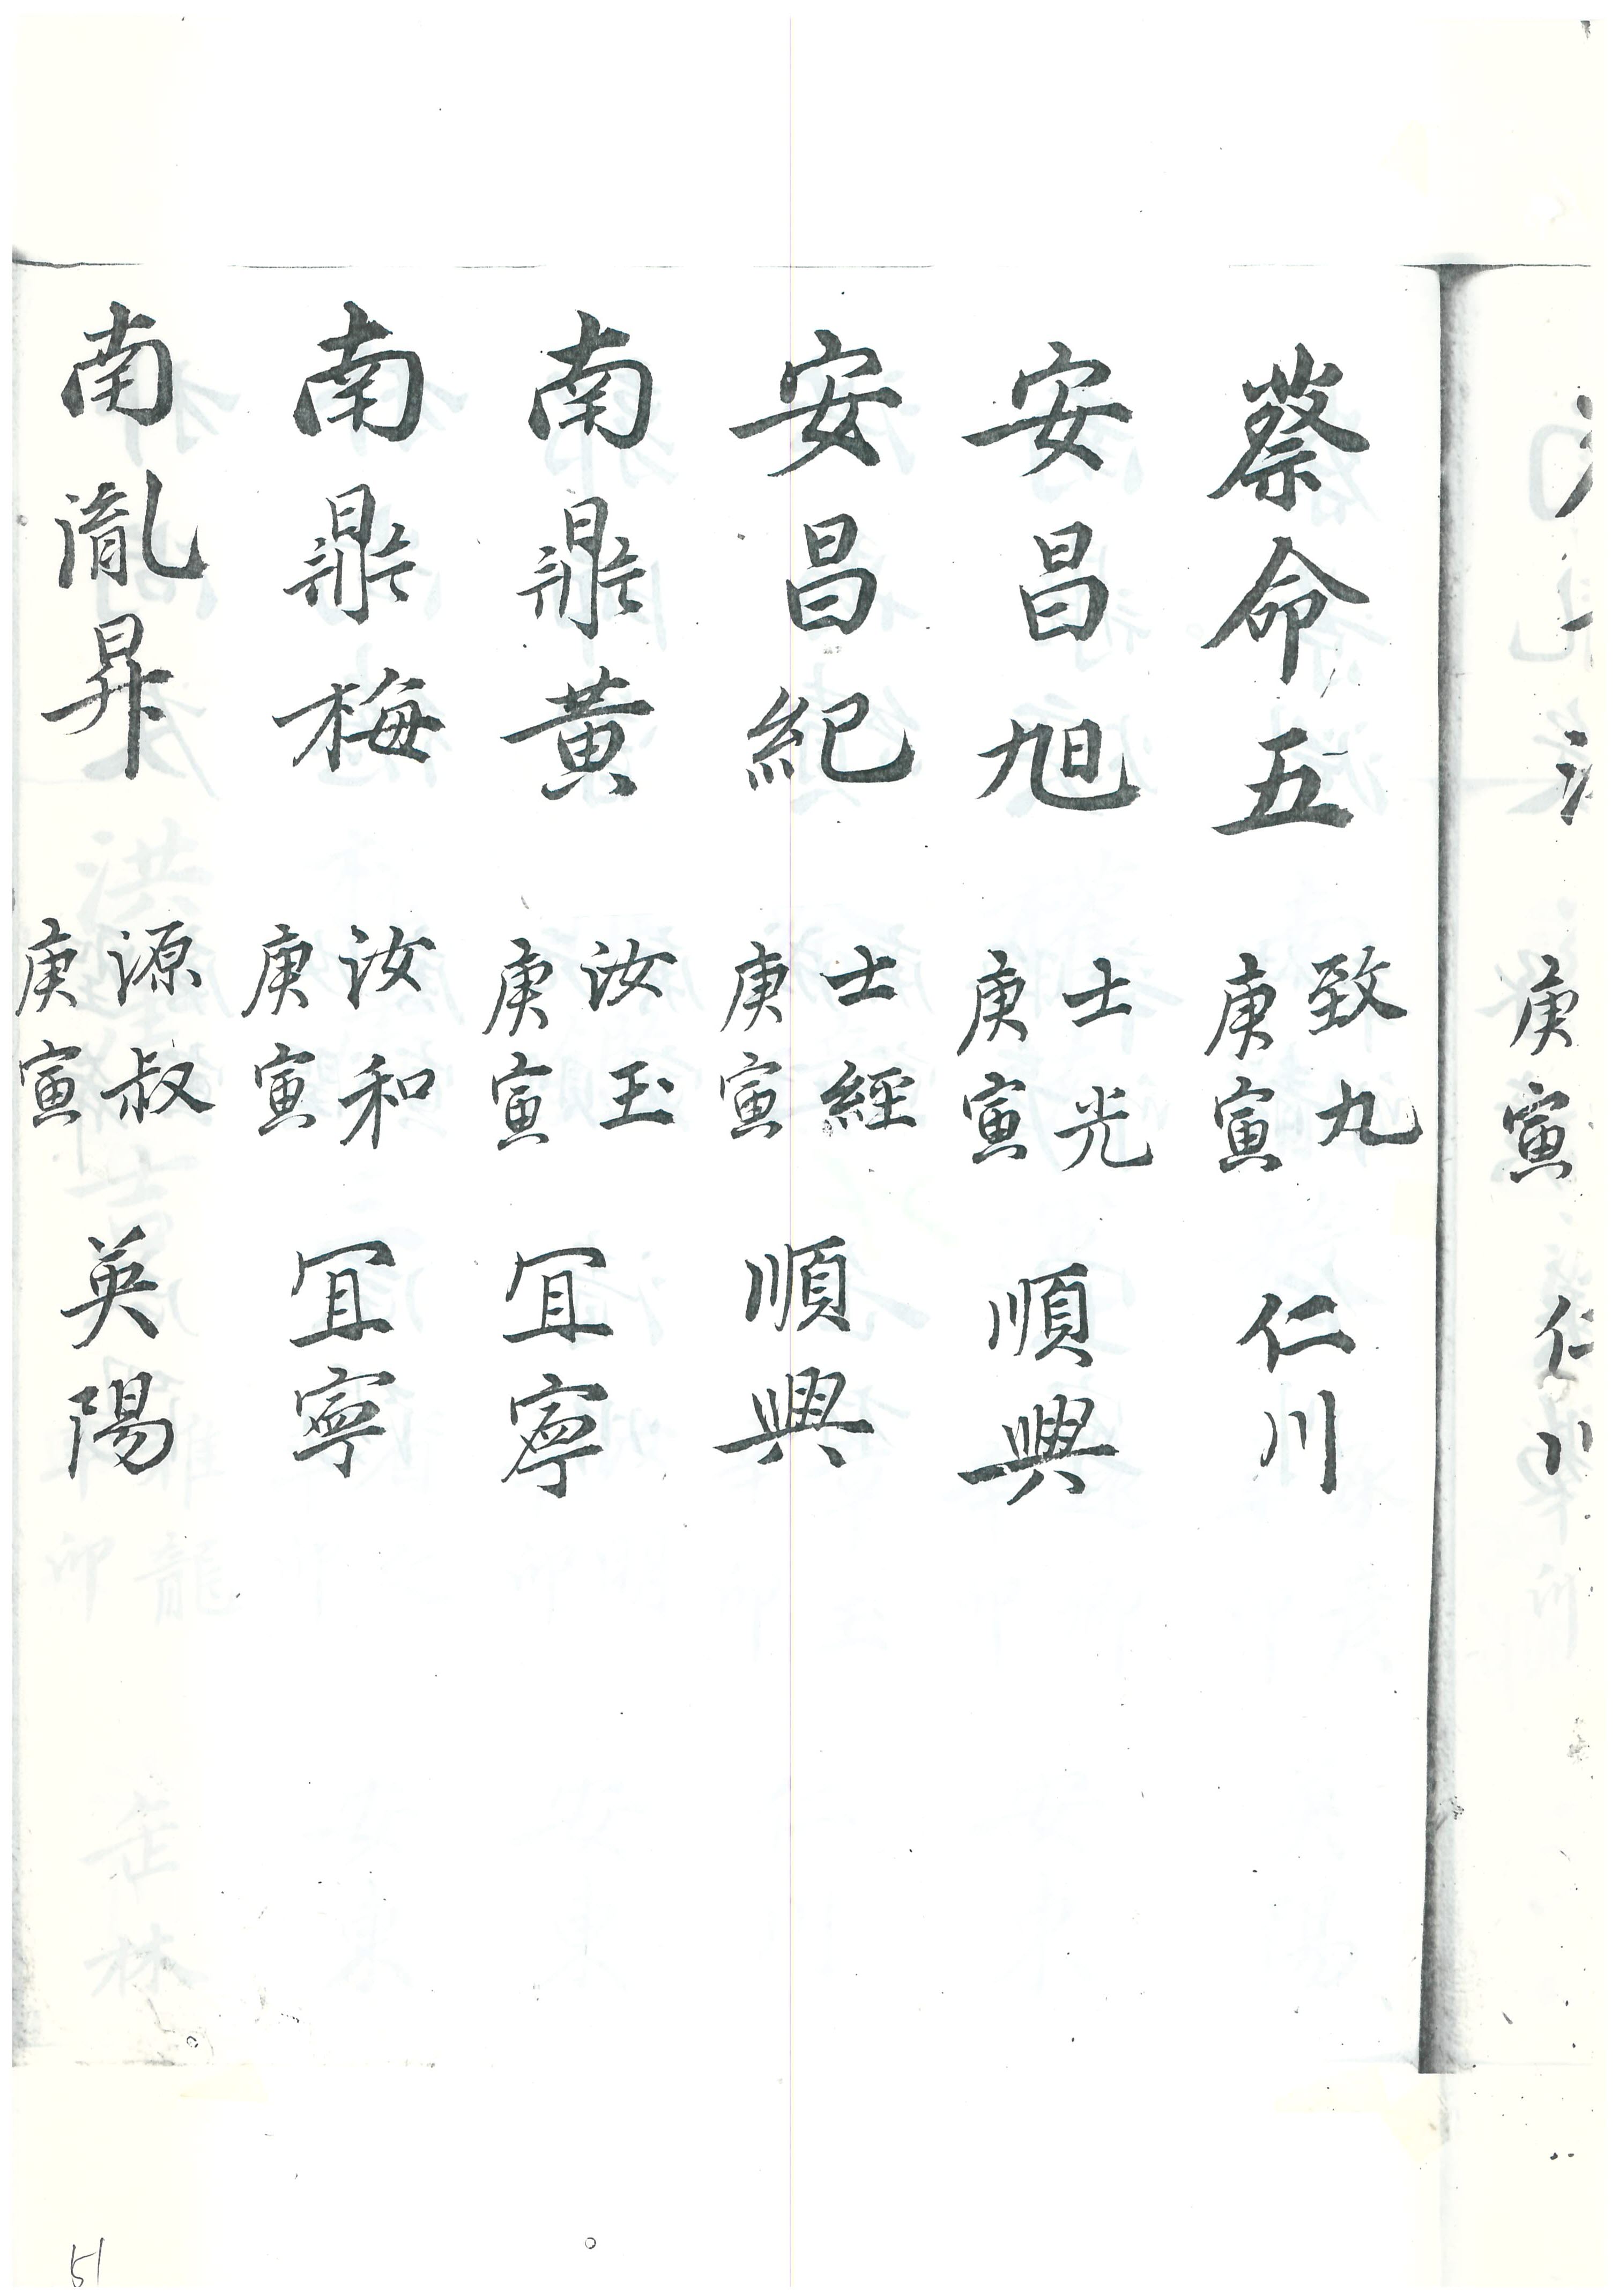 庚寅 仁川
蔡命五 致九 庚寅 仁川
安昌旭 士光 庚寅 順興
安昌紀 士經 庚寅 順興
南鼎黃 汝玉 庚寅 宜寧
南鼎梅 汝和 庚寅 宜寧
南胤昇 源叔 庚寅 英陽
51